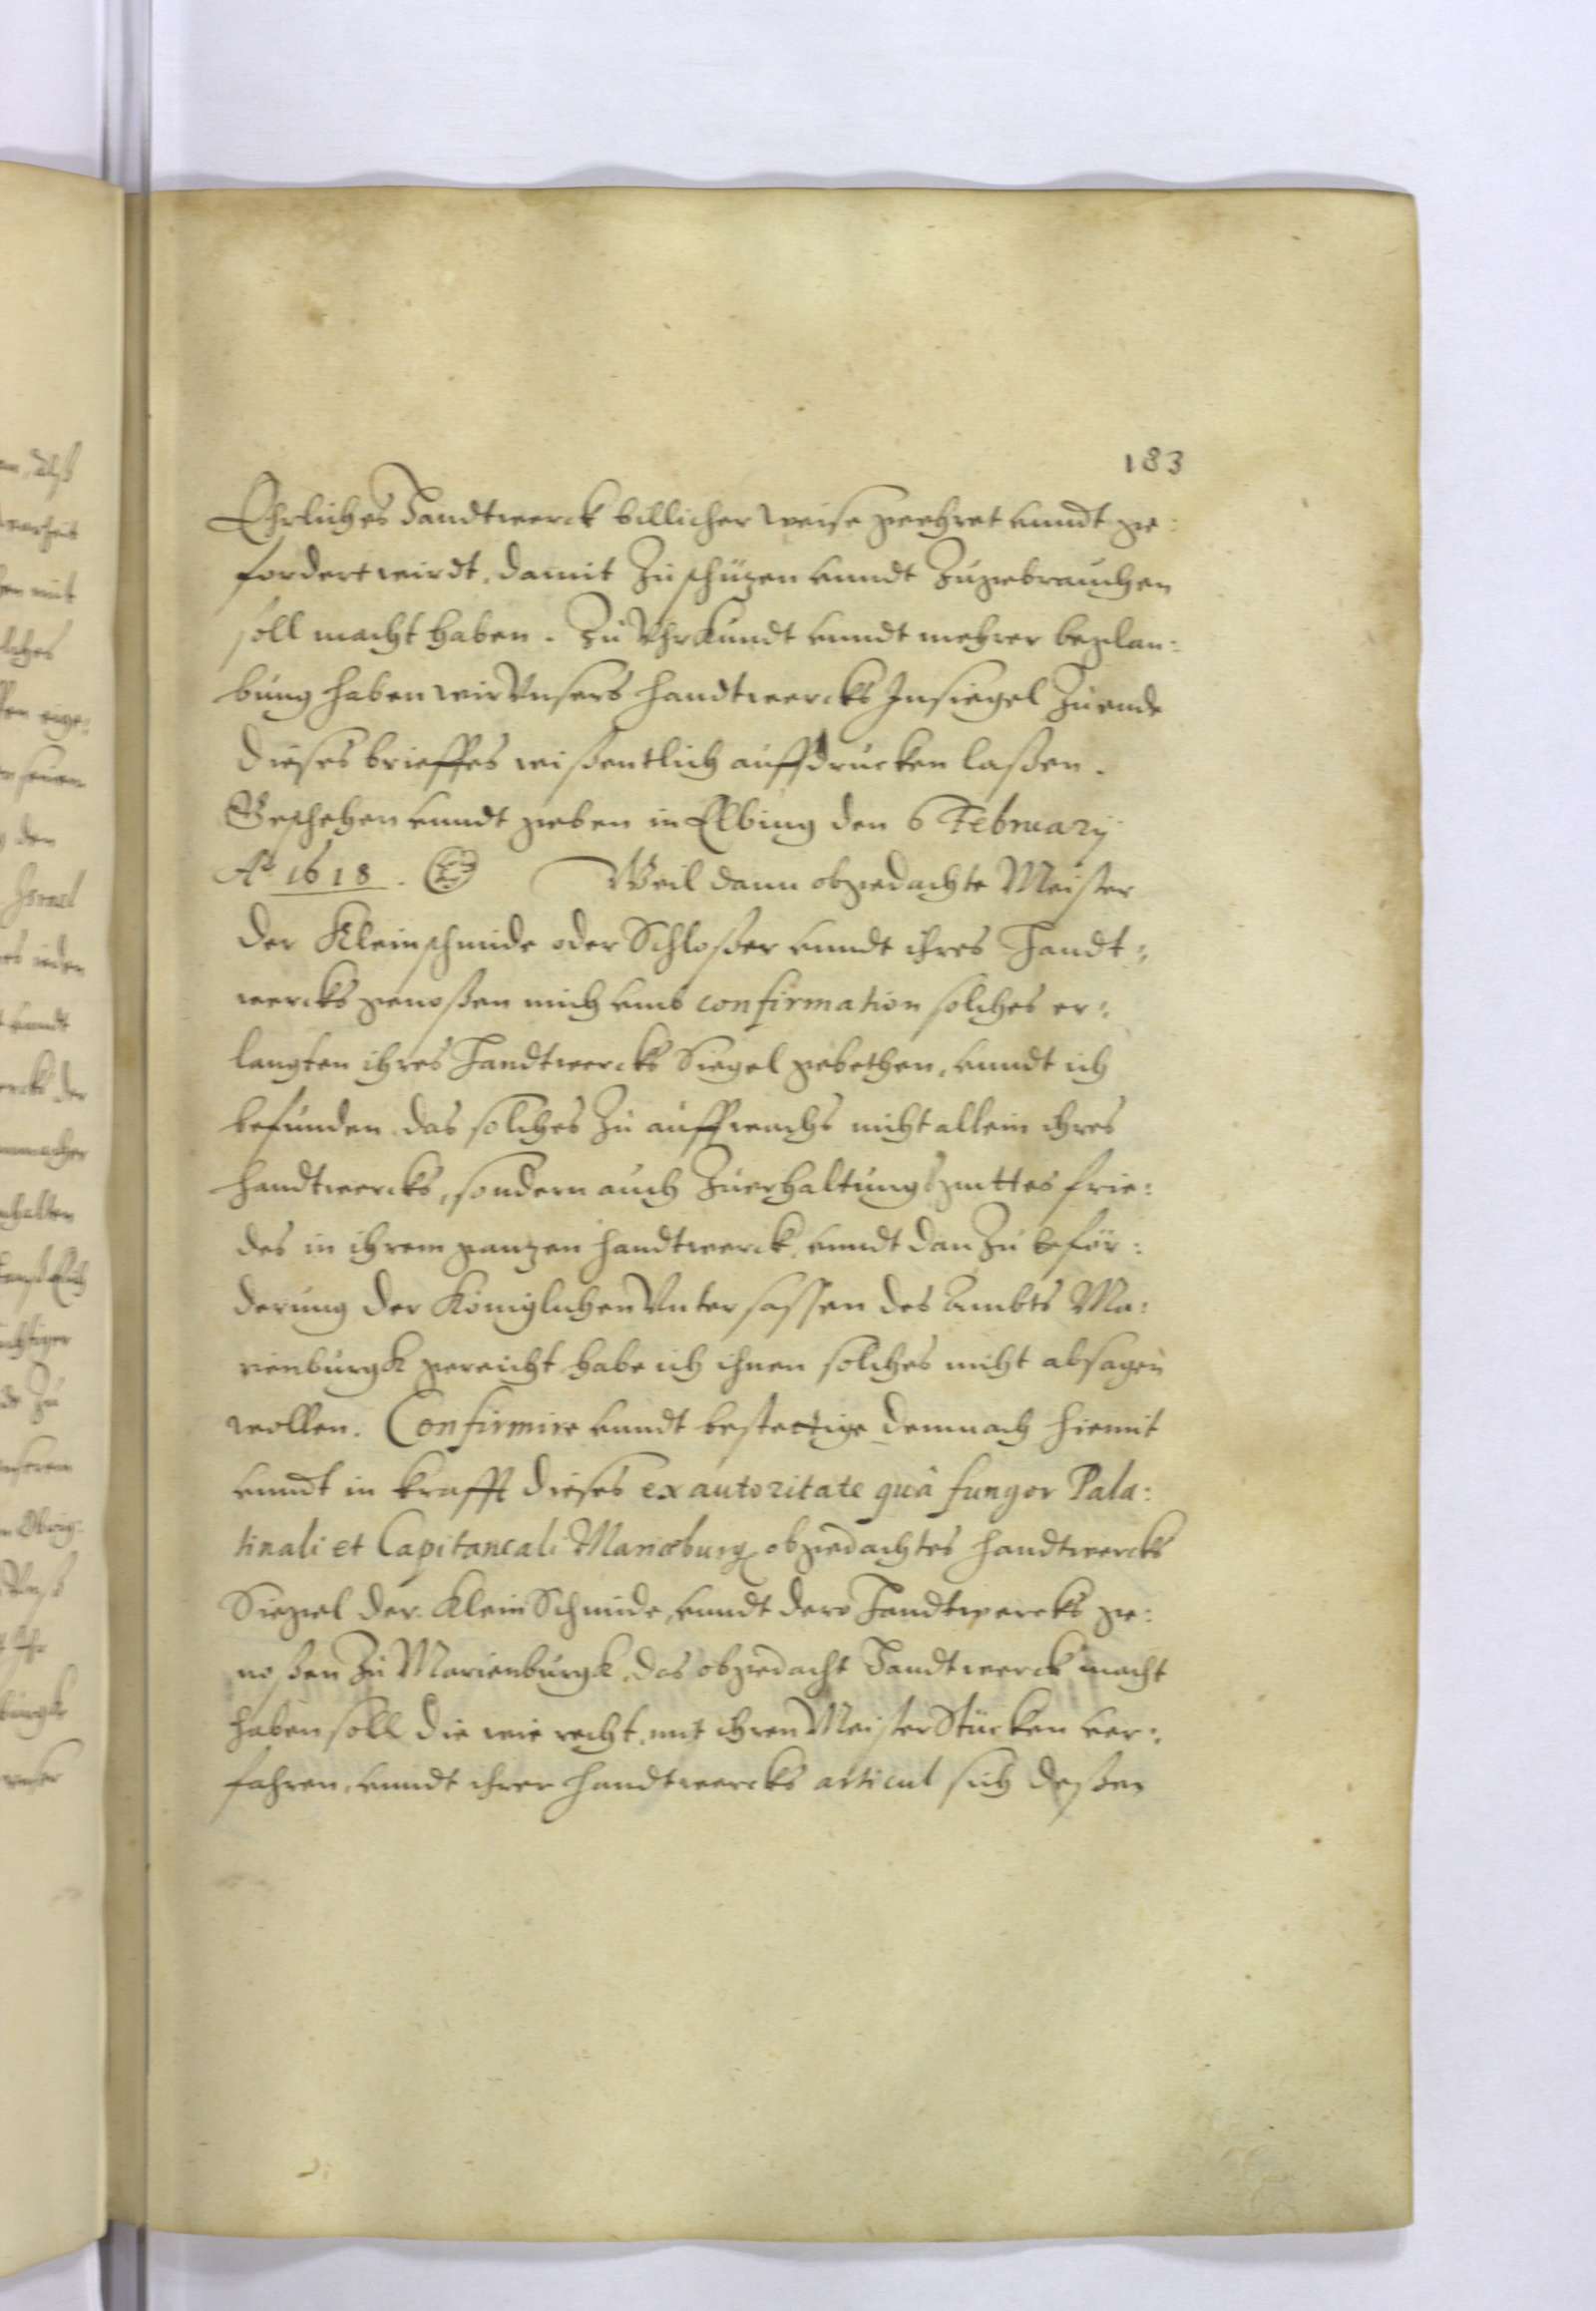 183
Ehrliches Handtwerck billicher weise geehret vnndt ge:
fordert wirdt, damit Zu schüzen vnndt Zugebrauchen
soll macht haben. Zu VhrKundt vnndt mehrer beglau:
bung haben wir Vnsers handtwercks Insiegel Zu ende
dieses brieffes wißentlich auffdrucken laßen.
Geschehen vnndt geben in Elbing den 6 February
Ao 1618. Weil dann obgedachte Meister
der Kleinschmide oder Schloßer vnndt ihres Handt:
wercks genoßen mich vmb confirmation solches er:
langten ihres Handtwercks Siegel gebethen, vnndt ich
befunden das solches Zu auffwachs nicht allein ihres
handtwercks, sondern auch Zuerhaltung guttes frie:
des in ihrem ganzen handtwerck, vnndt dan Zu beför:
derung der Königlichen Vntersassen des Ambts Ma:
rienburgk gereicht habe ich ihnen solches nicht absagen
wollen. Confirmire vnndt bestettige demnach hiemit
vnndt in krafft dieses ex autoritate quâ fungor Pala:
tinali et Capitaneali Mariæburg obgedachtes handtwercks
Siegel der Klein Schmide, vnndt dero Handtwercks ge:
noßen Zu Marienburgk, das obgedacht Handtwerck macht
haben soll die wie recht, mit ihren MeisterStücken ver:
fahren, vnndt ihrer handtwercks articul sich deßen